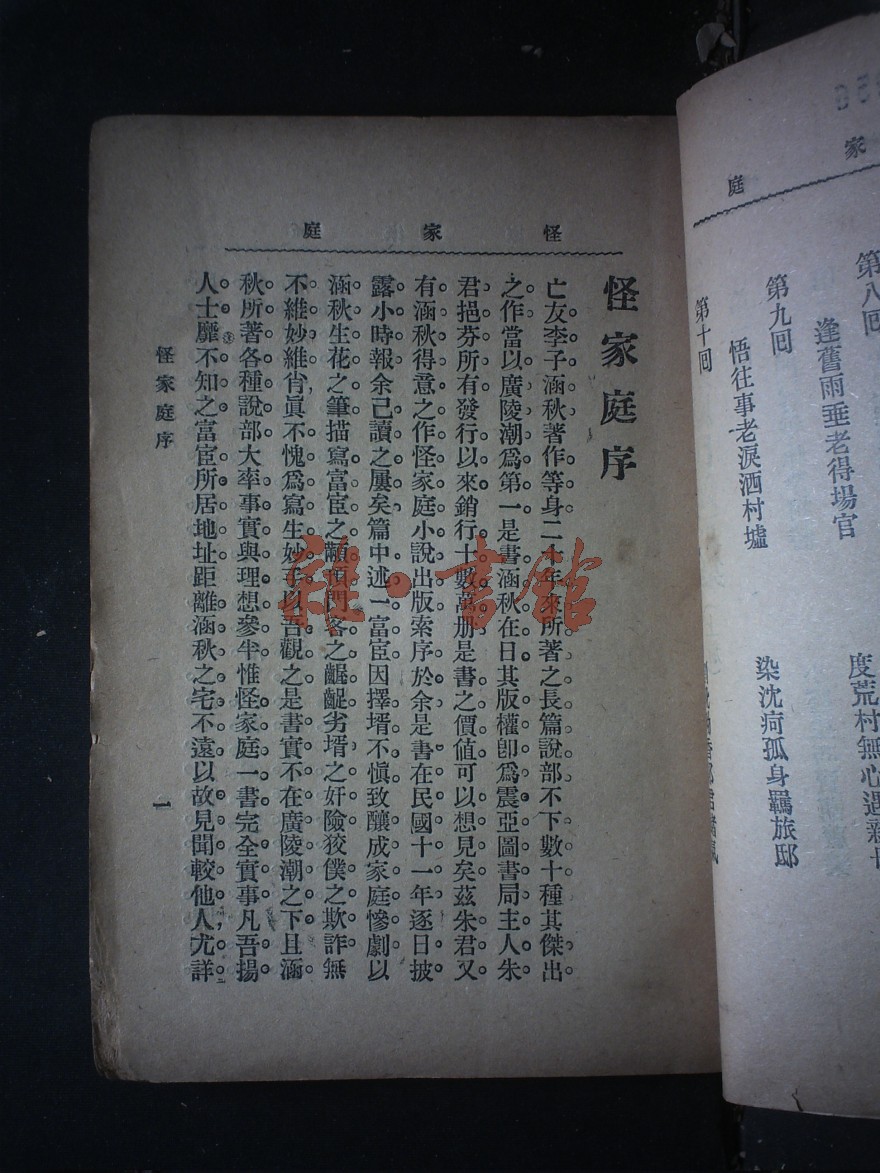 怪家庭
怪家庭序
亡友李子涵秋著作等身二十年來所著之長篇說部不下數十種其傑出
之作當以廣陵潮爲第一是書涵秋在日其版權卽爲震亞圖書局主人朱
君挹芬所有發行以來銷行十數萬册是書之價值可以想見矣茲朱君又
有涵秋得意之作怪家庭小說出版索序於余是書在民國十一年逐日披
露小時報余已讀之屢矣篇中述一富宦因擇壻不愼致釀成家庭慘劇以
涵秋生花之筆描寫富宦之顢頇門客之齷齪劣壻之奸險狡僕之欺詐無
不維妙維肖眞不愧爲寫生妙手以吾觀之是書實不在廣陵潮之下且涵
秋所著各種說部大率事實與理想參半惟怪家庭一書完全實事凡吾揚
人士靡不知之富宦所居地址距離涵秋之宅不遠以故見聞較他人尤詳
怪家庭序
一
家庭
第八囘
逢舊雨垂老得場官
度荒村無心遇
第九囘
悟往事老淚洒村墟
染沈疴孤身羈旅邸
第十囘
雜·書館